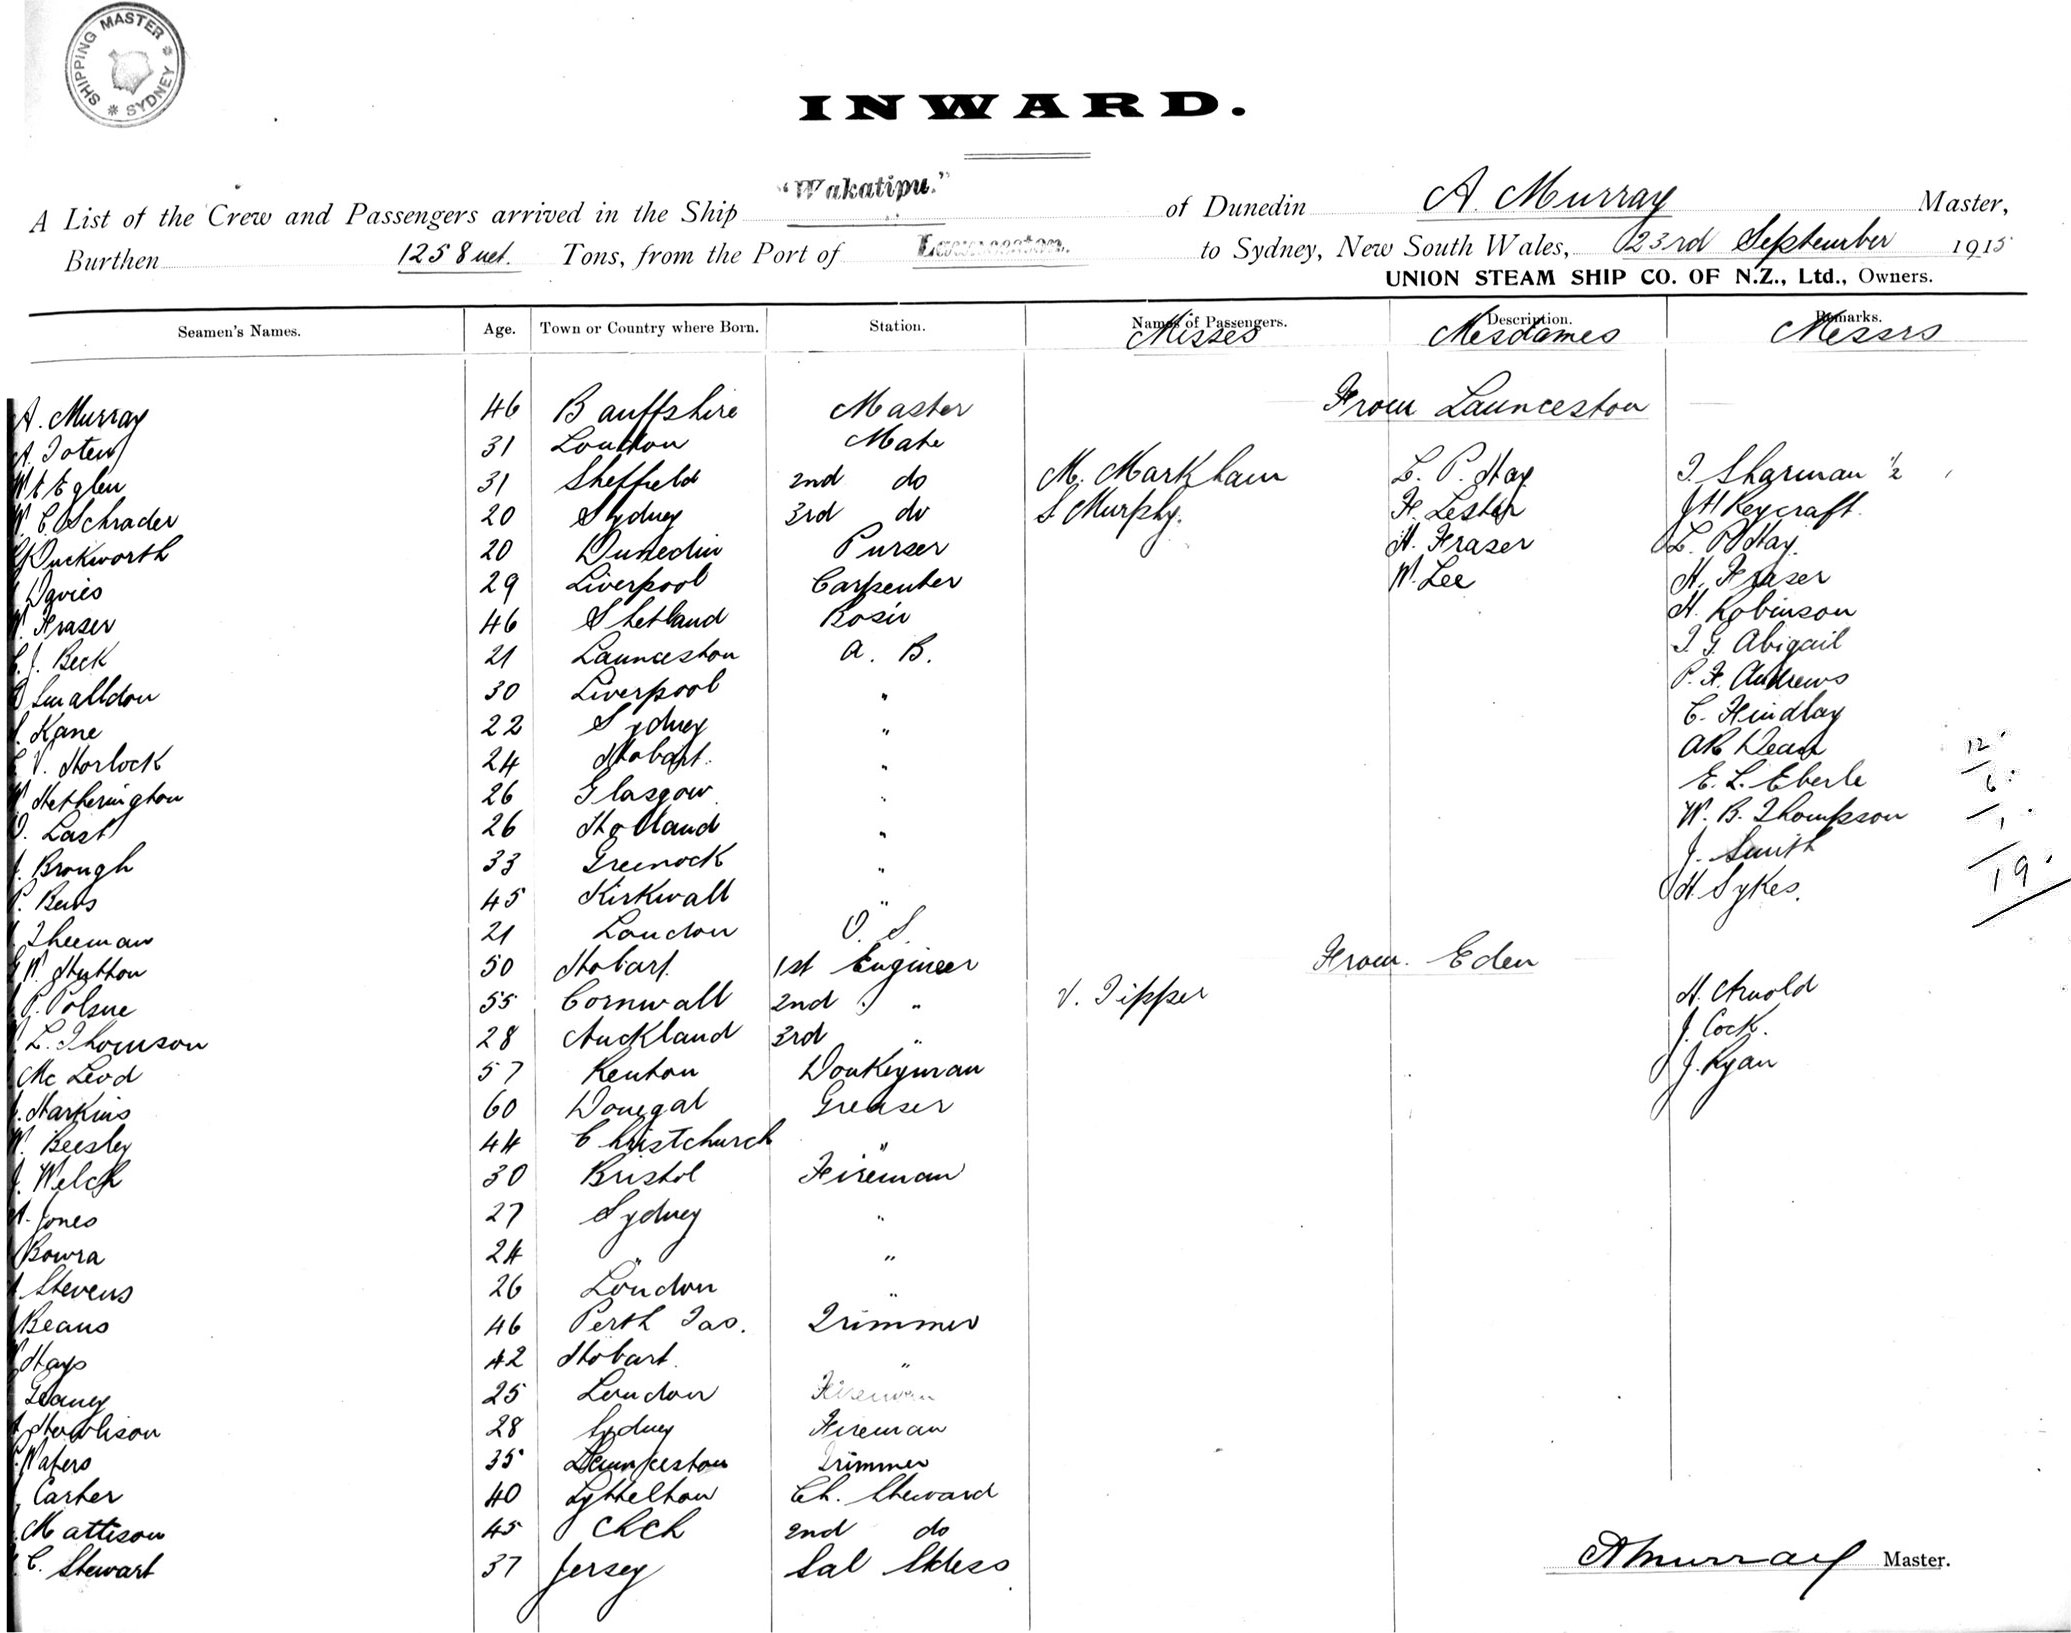 SHIPPING MASTER * SYDNEY *
INWARD.
A List of the Crew and Passengers arrived in the Ship "Wakatipu." of Dunedin A. Murray Master,
Burthen 1258 net. Tons, from the Port of Launceston. to Sydney, New South Wales, 23rd September 1915
UNION STEAM SHIP CO. OF N.Z., Ltd., Owners.
Seamen's Names. Age. Town or Country where Born. Station. Names of Passengers. Description. Remarks.
Misses Mesdames Messrs
From Launceston
A. Murray 46 Banffshire Master
A. 31 London Mate
Eglen 31 Sheffield 2nd do M. Markham L. P. Hay T. Sharman 1/2
W. C. Schrader 20 Sydney 3rd do S Murphy. F. Lester J H Keycraft.
Duckworth 20 Dunedin Purser H. Fraser L. P. Hay.
Davies 29 Liverpool Carpenter W. Lee H. Fraser
W. Fraser 46 Shetland Bosn H. Robinson
C. J. Beck 21 Launceston A. B. T. G. Abigail
Smalldon 30 Liverpool " P. F. Andrews
Kane 22 Sydney " C. Findlay
V. Horlock 24 Hobart. " AR Dean 12
W Hetherington 26 Glasgow " E. L. Eberle 6
Last 26 Holland " W. B. Thompson 1
J. Brough 33 Greenock " J. Smith 19
Bews 45 Kirkwall " H Sykes.
Theeman 21 London O. S.
From Eden
W. Hutton 50 Hobart. 1st Engineer H. Arnold
P. Polsue 55 Cornwall 2nd " V. Tipper J. Cock.
L. Thomson 28 Auckland 3rd " J. Ryan
Mc Leod 57 Renton Donkeyman
Harkins 60 Donegal Greaser
W. Beesley 44 Christchurch "
J. Welch 30 Bristol Fireman
A. Jones 27 Sydney "
Bowra 24 " "
Stevens 26 London "
Beans 46 Perth Tas. Trimmer
Hays 42 Hobart. "
25 London Fireman
28 Sydney Fireman
Waters 35 Launceston Trimmer
Carter 40 Lyttelton Ch. Steward
Mattison 45 ChCh 2nd do
C. Stewart 37 Jersey Sal Stdess
A Murray Master.